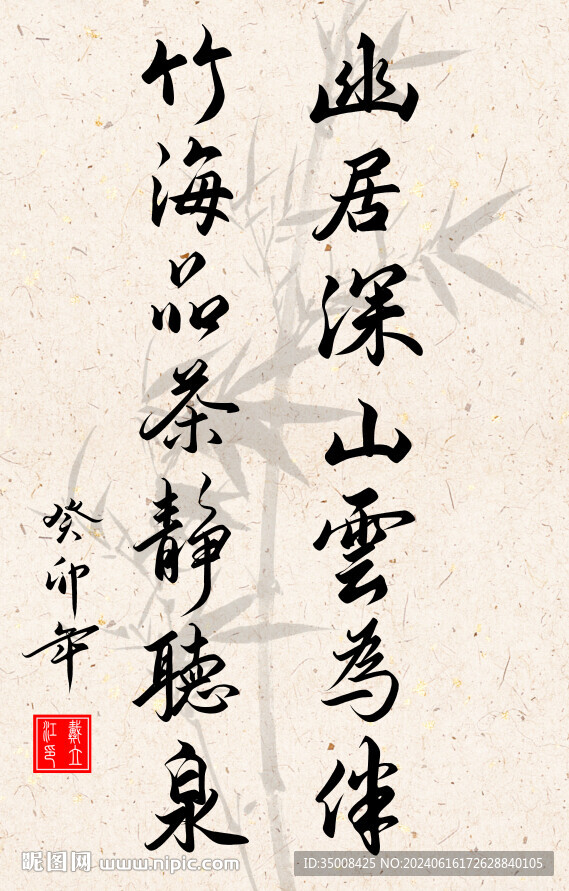 幽居深山雲為伴
竹海品茶靜聽泉
癸卯年
戴立
江印
昵图网 www.nipic.com
ID:35008425 NO:20240616172628840105